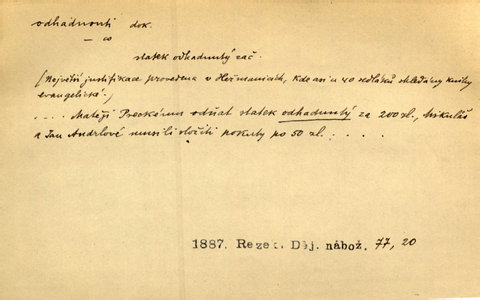 odhadnouti dok.
— co
statek odhadnutý zač
(Největší justifikace provedena v Heřmanicích, kde asi u 40 sedláků shledány knihy
evangelické.)
.... Matěji Preckému odňat statek odhadnutý za 200 zl., Mikuláš
a Jan Andrlové musili složiti pokuty po 50 zl. . . . .
1887. Rezek. Děj. nábož. 77, 20